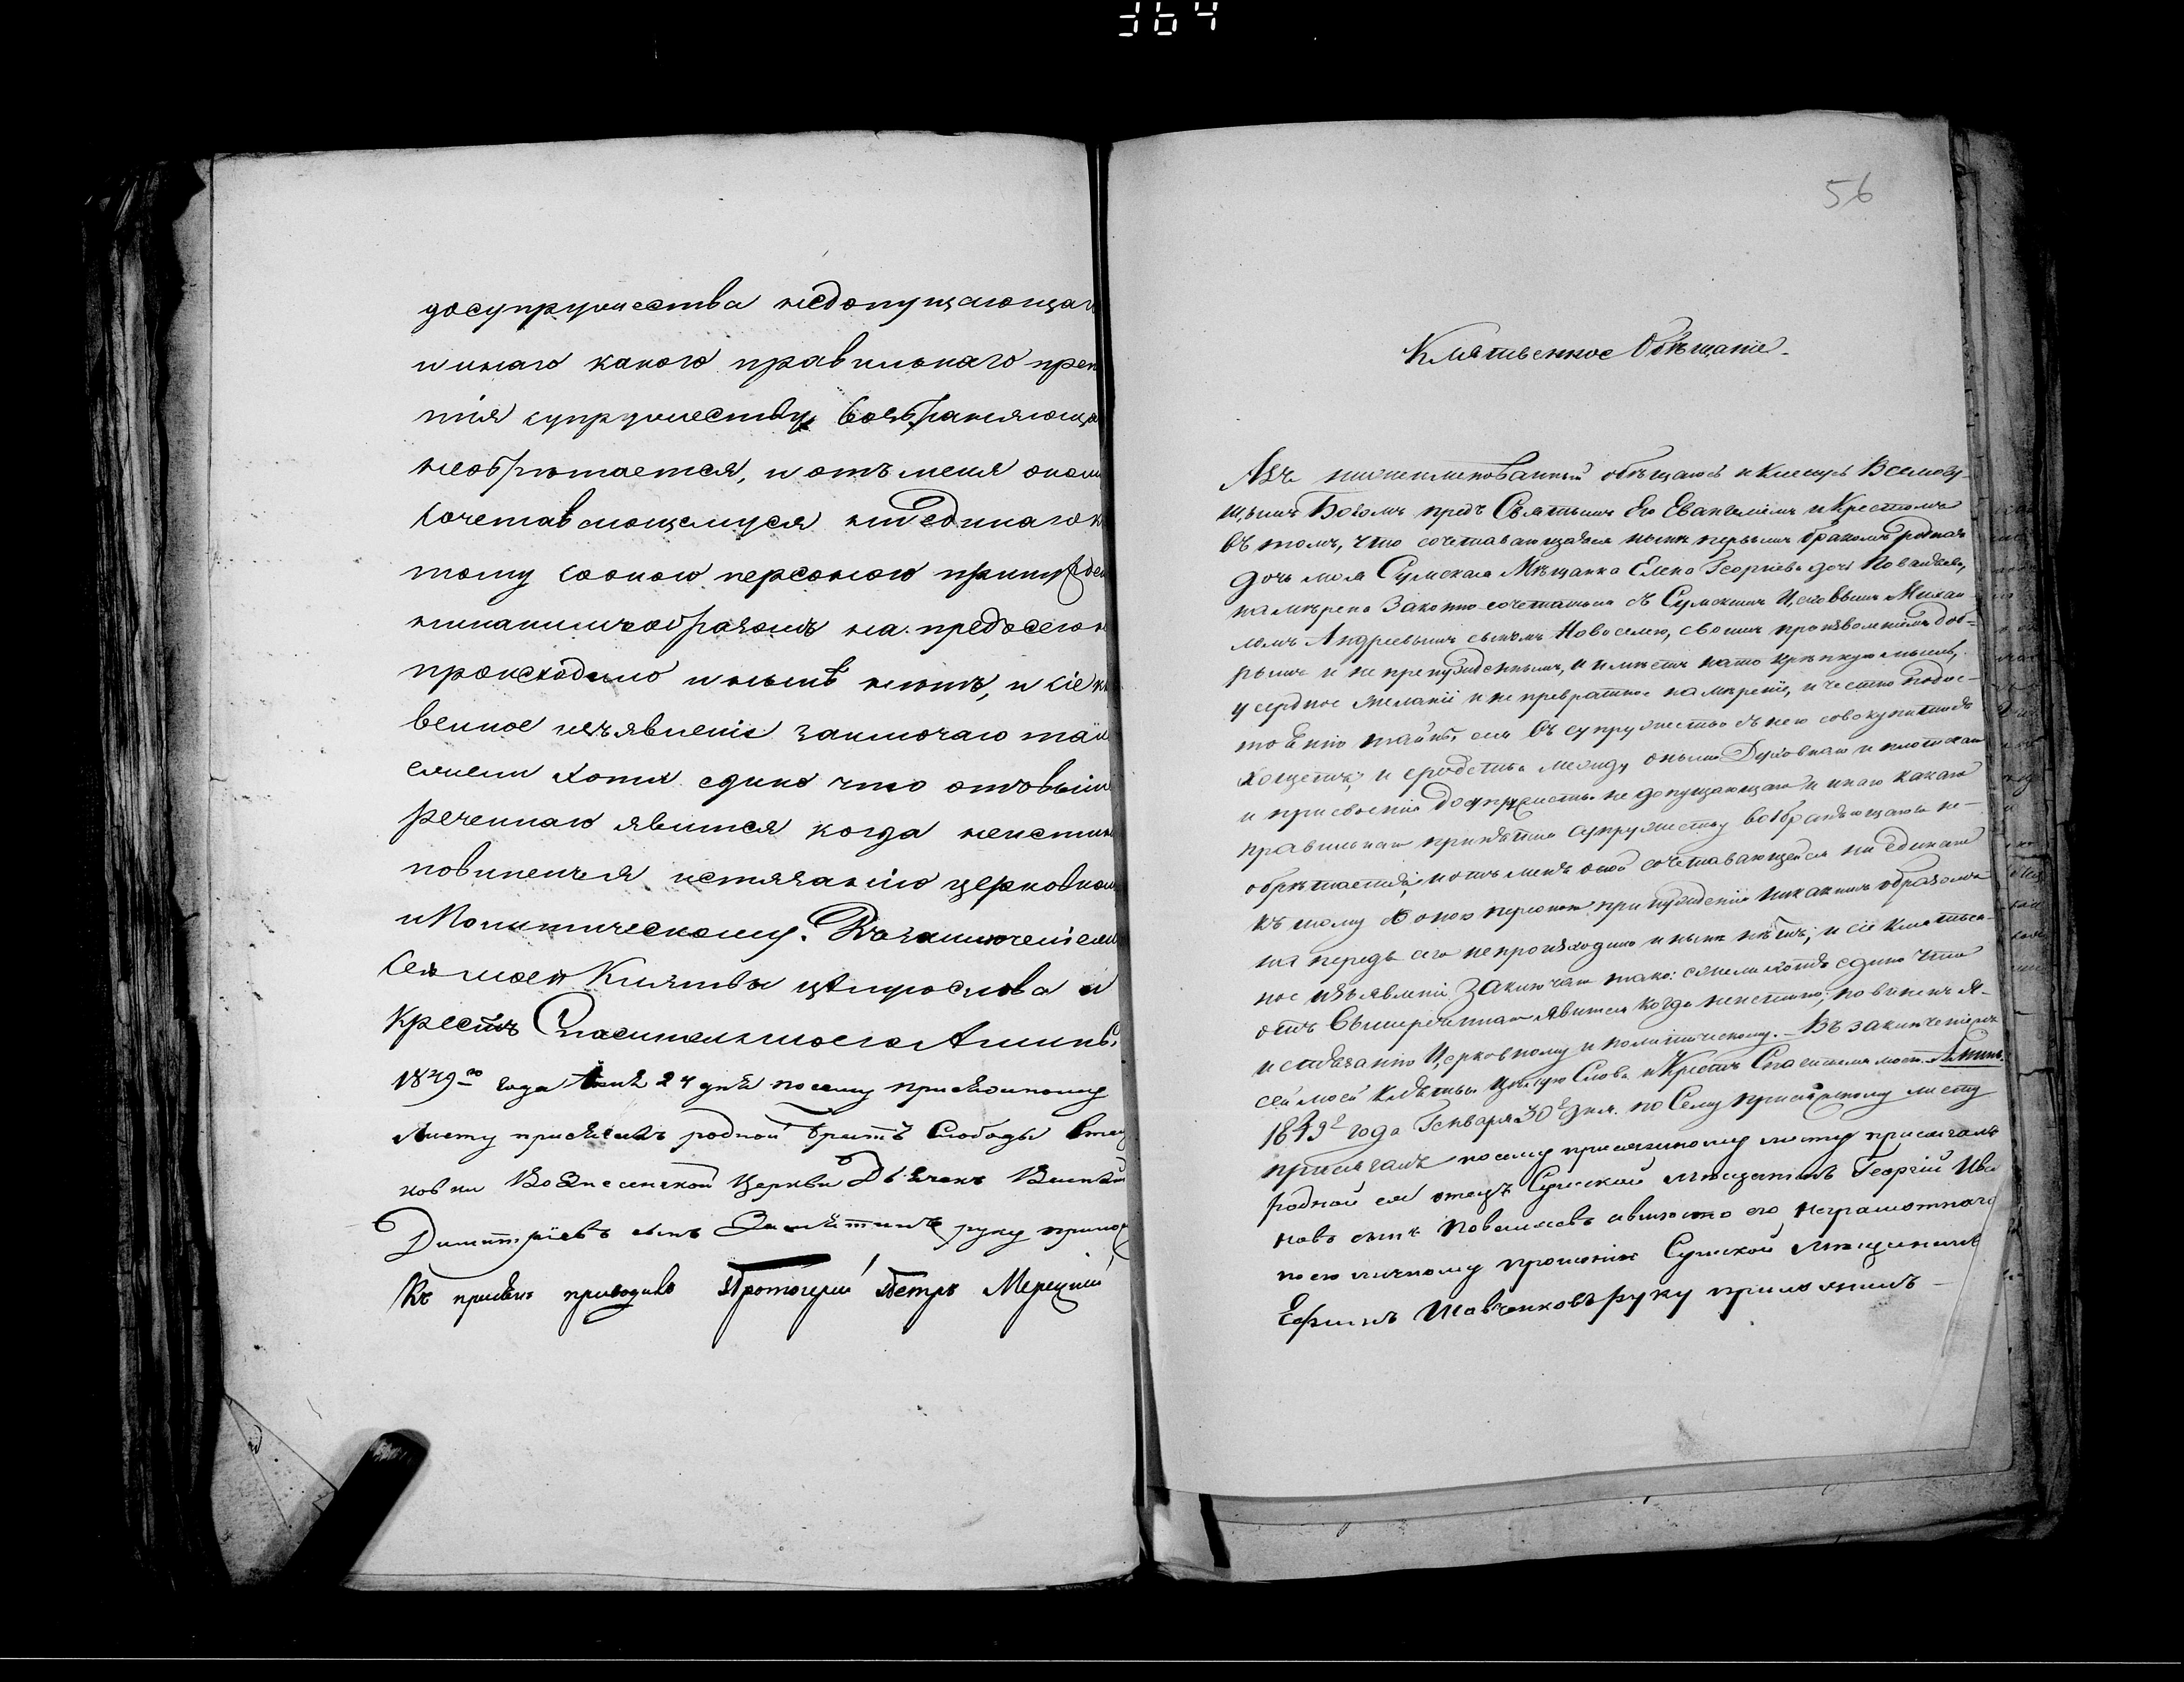 364
досупружества недопущающаго
и инаго какого правильнаго преп
тія супружеству возбраняющаго
необрѣтается, и отъ меня оном
сочетавающемуся ни единаго к
тому сооною персоною принужден
никакимъ образомъ на предъ сего н
происходило и нынѣ нѣтъ, и сіе кля
венное изъявленіе заключаю тако
ежели хотя едино что отъ выше
реченнаго явится когда неистин
повиненъ я истязанію церковном
и Политическому. Въ заключеніе
сея моея Клятвы цѣлую слова и
Крестъ Спасителя моего Аминь.
1849го года 24 дня по сему присяжному
листу присягалъ родной братъ Слободы
новки Вознесенской Церкви Дьячекъ
Димитріевъ сынъ руку прилож
Къ присягѣ приводилъ Протоіерей Петръ
56
Клятвенное Обѣщаніе.
Азъ нижеименованный обѣщаюсь и клянусь Всемогу-
щимъ Богомъ предъ Святымъ Его Евангеліемъ и Крестомъ
въ томъ, что сочетавающаяся нынѣ первымъ бракомъ родная
дочь моя Сумская Мѣщанка Елена Георгіева дочь
намѣрена законно сочетаться съ Сумскимъ Цеховымъ Михаи
ломъ Андреевымъ сыномъ своимъ произволеніемъ доб-
рымъ и не принужденнымъ, и имѣетъ на то крѣпкую мысль,
усердное желаніе и не превратное намѣреніе, и честно
тайнѣ, въ супружество съ нею совокупитися
хощетъ; и сродства между оными Духовнаго и плотскаго
и присвоенія до супружества не допущающаго и инаго какаго
правильнаго препятія супружеству возбраняющаго не-
обрѣтается, и отъ меня оной сочетавающейся ни единаго
къ тому съ оною персоною принужденія никакимъ образомъ
на передъ сего не происходило и нынѣ нѣтъ; и сіе клятвен-
ное изъявленіе заключаю тако: ежели хотя едино что
отъ вышереченнаго явится когда неистинно; повиненъ я-
истязанію Церковному и политическому. Въ заключеніе
сей моей клятвы цѣлую Слова и Крестъ Спасителя моего. Аминь.
1849 года Генваря 30 дня. по Сему присяжному листу
присягалъ по сему присяжному листу присягалъ
родной ея отецъ Сумской мѣщанинъ Георгій Ива
новъ сынъ авмѣсто его неграмотнаго
по его личному прошенію Сумской мѣщанинъ
Ефимъ Шавченковъ руку приложилъ